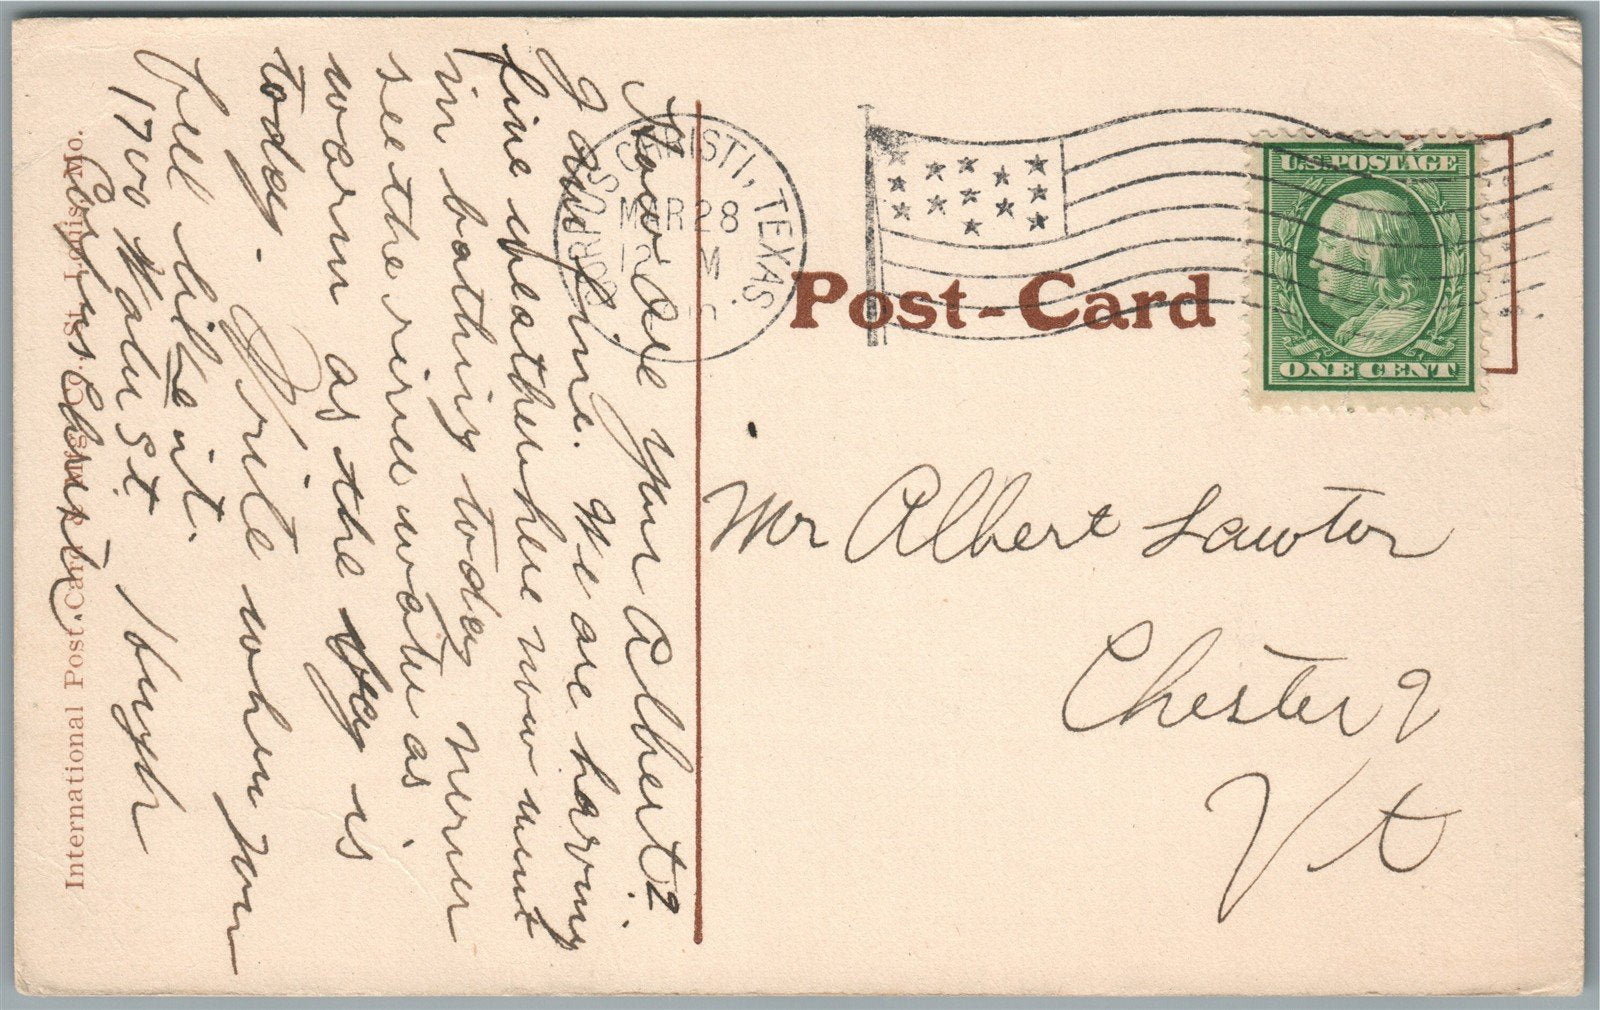 How are you Albert?
I am fine. We are having
fine weather here now went
in bathing today never
see the river water as
warm as the day is
today. Write when you
feel like it.
1700 St.
Corpus Christi.
Hugh
CORPUS CHRISTI, TEXAS.
MAR 28
12 M
U.S. POSTAGE
ONE CENT
Post-Card
Mr Albert Lawton
Chester
Vt
International Post Card Co. St. Louis, Mo.